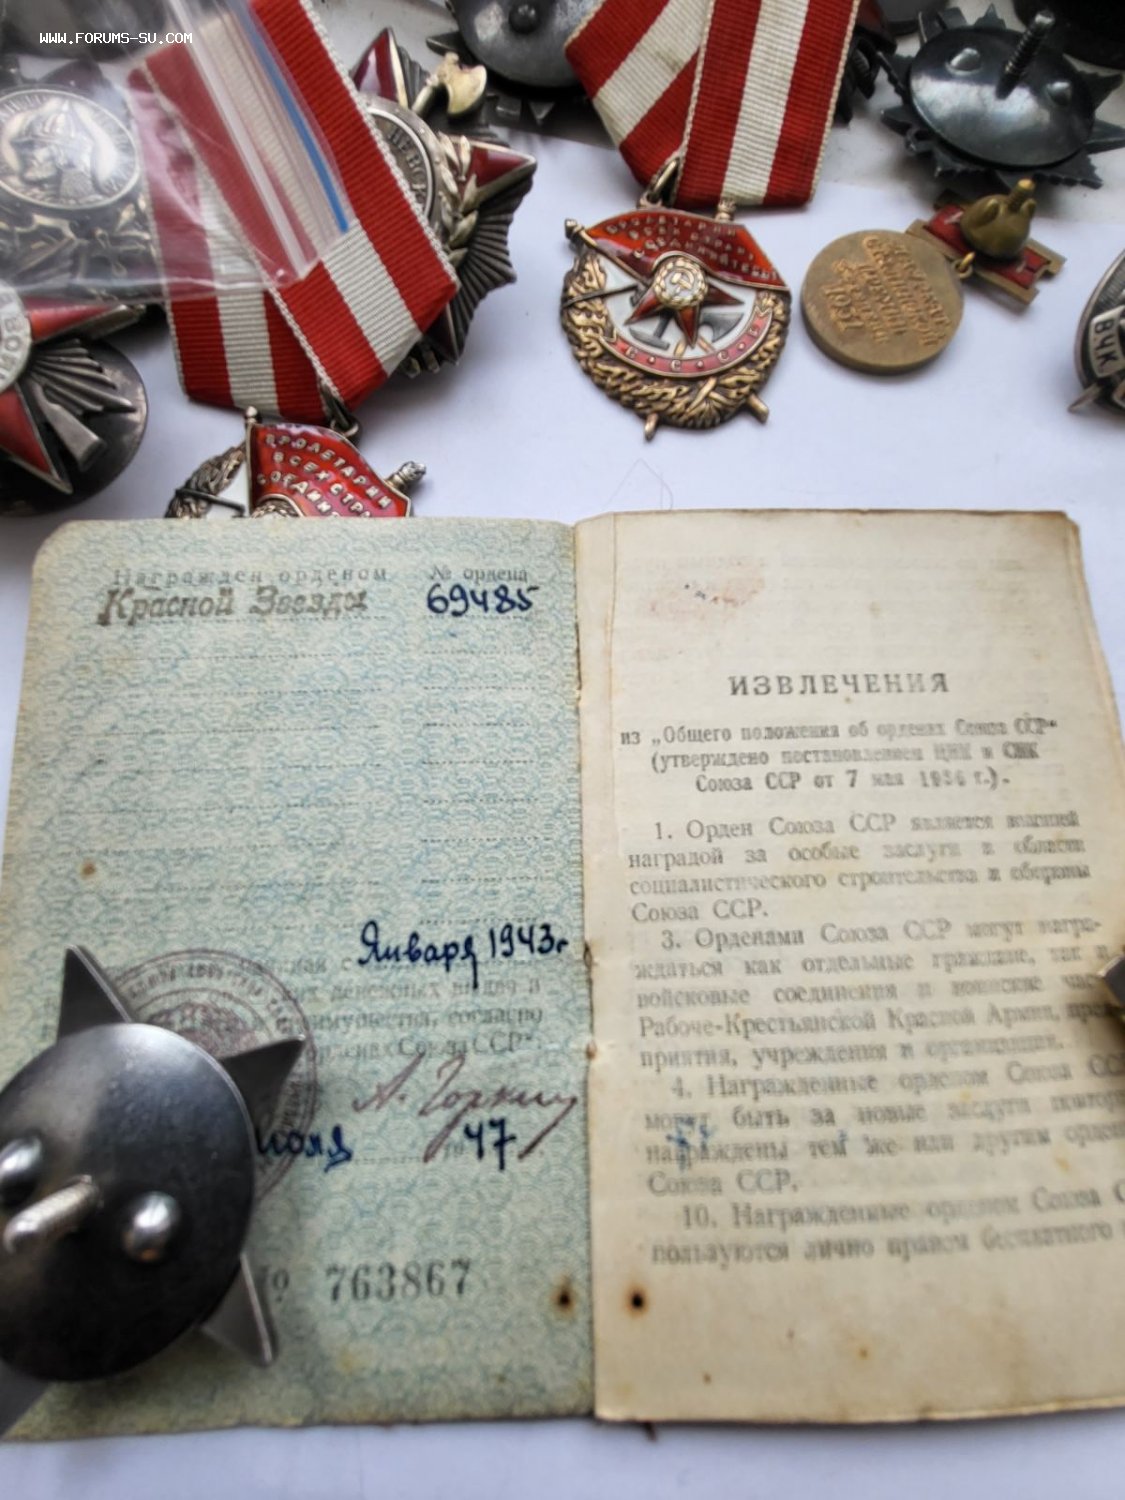 WWW.FORUMS-SU.COM
ПРОЛЕТАРИИ
ВСЕХ СТРАН
СОЕДИНЯЙТЕСЬ
С С С Р
ВЧК
ПРОЛЕТАРИИ
ВСЕХ СТР
СОЕДИН
Награжден орденом № ордена
Красной Звезды 69485
Января 1943г
денежных выдач и
преимущества, согласно
орденах Союза ССР".
А. Горкин
июля 1947
№ 763867
ИЗВЛЕЧЕНИЯ
из „Общего положения об орденах Союза ССР"
(утверждено постановлением ЦИК и СНК
Союза ССР от 7 мая 1936 г.).
1. Орден Союза ССР является высшей
наградой за особые заслуги в области
социалистического строительства и обороны
Союза ССР.
3. Орденами Союза ССР могут награ-
ждаться как отдельные граждане, так и
войсковые соединения и воинские час
Рабоче-Крестьянской Красной Армии, пред
приятия, учреждения и организации.
4. Награжденные орденом Союза СС
могут быть за новые заслуги повтор
награждены тем же или другим орден
Союза ССР.
10. Награжденные орденом Союза С
пользуются лично правом бесплатного